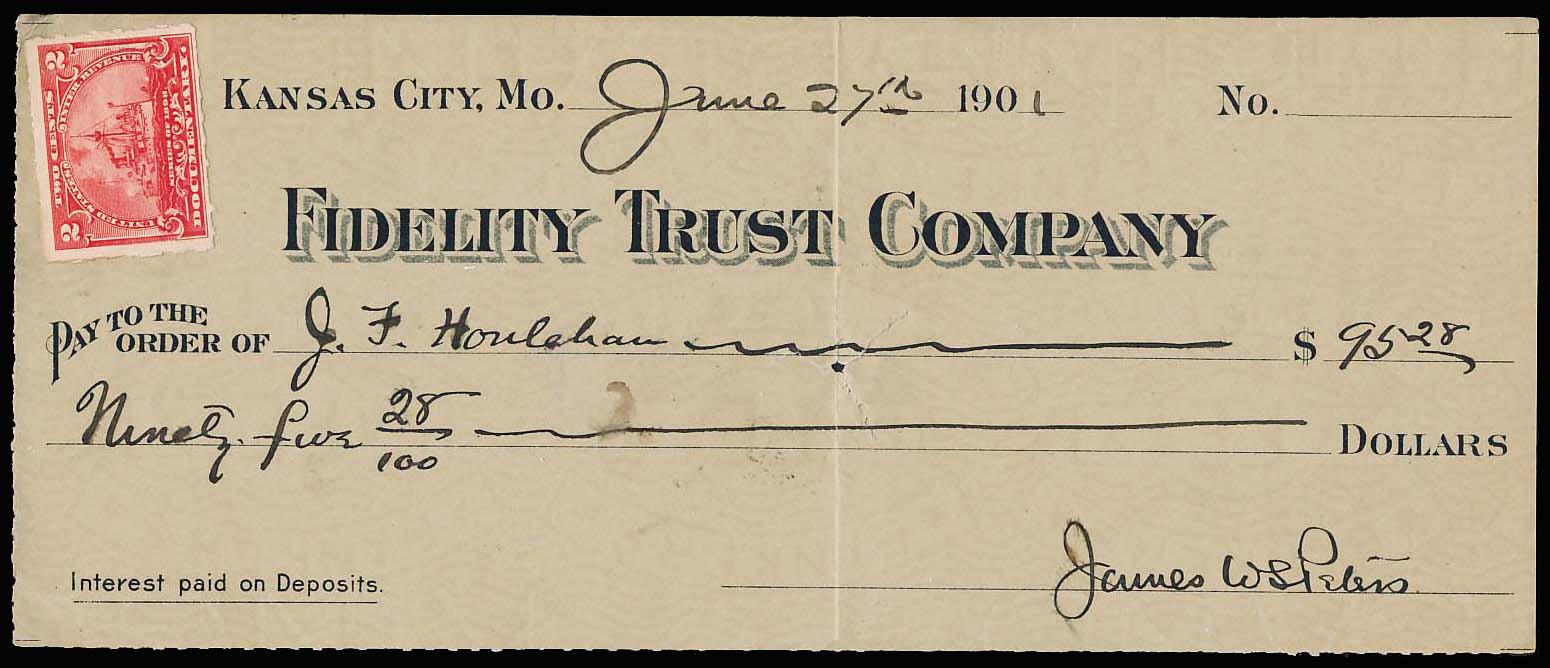 KANSAS CITY, MO. June 27th 1901 No.
FIDELITY TRUST COMPANY
PAY TO THE ORDER OF J. F. Houlehan $ 95 28
Ninety five 28/100 DOLLARS
James W S Peters
Interest paid on Deposits.
2 TWO CENTS 2
UNITED STATES INTER. REVENUE
SERIES OF 1898
DOCUMENTARY.